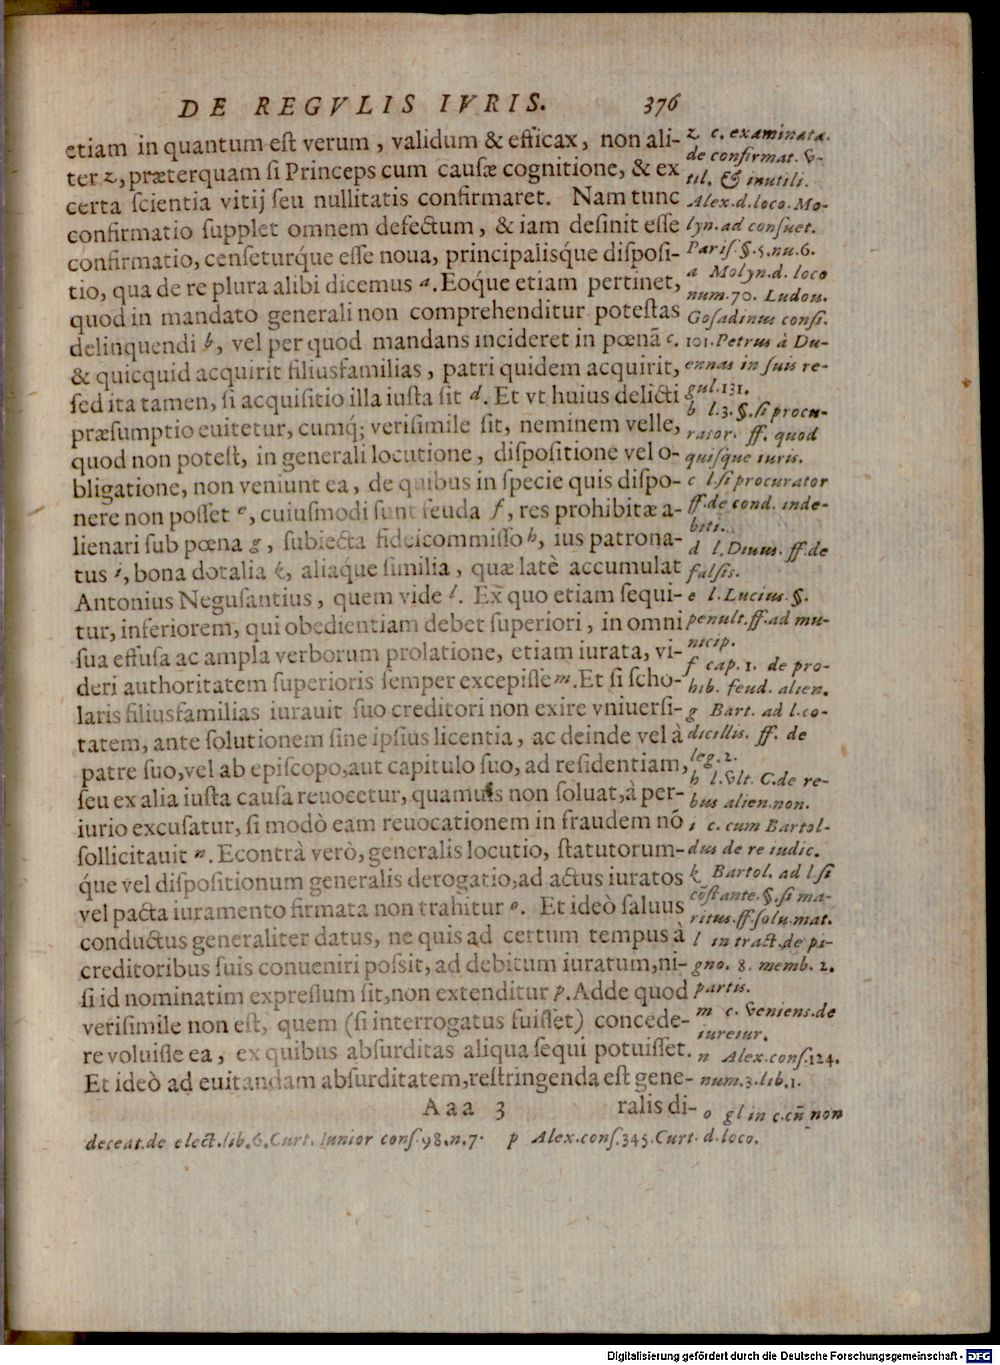 DE REGVLIS IVRIS. 376
etiam in quantum est verum, validum & efficax, non ali-
ter z, præterquam si Princeps cum causæ cognitione, & ex
certa scientia vitij seu nullitatis confirmaret. Nam tunc
confirmatio supplet omnem defectum, & iam desinit esse
confirmatio, censeturq́ue esse noua, principalisq́ue disposi-
tio, qua de re plura alibi dicemus a. Eoq́ue etiam pertinet,
quod in mandato generali non comprehenditur potestas
delinquendi b, vel per quod mandans incideret in pœnã c.
& quicquid acquirit filiusfamilias, patri quidem acquirit,
sed ita tamen, si acquisitio illa iusta sit d. Et vt huius delicti
præsumptio euitetur, cumq́; verisimile sit, neminem velle,
quod non potest, in generali locutione, dispositione vel o-
bligatione, non veniunt ea, de quibus in specie quis dispo-
nere non posset e, cuiusmodi sunt feuda f, res prohibitæ a-
lienari sub pœna g, subiecta fideicommisso h, ius patrona-
tus i, bona dotalia k, aliaq́ue similia, quæ latè accumulat
Antonius Negusantius, quem vide l. Ex quo etiam sequi-
tur, inferiorem, qui obedientiam debet superiori, in omni
sua effusa ac ampla verborum prolatione, etiam iurata, vi-
deri authoritatem superioris semper excepisse m. Et si scho-
laris filiusfamilias iurauit suo creditori non exire vniuersi-
tatem, ante solutionem sine ipsius licentia, ac deinde vel à
patre suo, vel ab episcopo, aut capitulo suo, ad residentiam,
seu ex alia iusta causa reuocetur, quamuis non soluat, à per-
iurio excusatur, si modò eam reuocationem in fraudem nõ
sollicitauit n. Econtrà verò, generalis locutio, statutorum-
q́ue vel dispositionum generalis derogatio, ad actus iuratos
vel pacta iuramento firmata non trahitur o. Et ideò saluus
conductus generaliter datus, ne quis ad certum tempus à
creditoribus suis conueniri possit, ad debitum iuratum, ni-
si id nominatim expressum sit, non extenditur p. Adde quod
verisimile non est, quem (si interrogatus fuisset) concede-
re voluisse ea, ex quibus absurditas aliqua sequi potuisset.
Et ideò ad euitandam absurditatem, restringenda est gene-
Aaa 3 ralis di-
z c. examinata.
de confirmat. v-
til. & inutili.
Alex. d. loco. Mo-
lyn. ad consuet.
Paris. §. 5. nu. 6.
a Molyn. d. loco
num. 70. Ludou.
Gosadinus consi.
101. Petrus à Du-
ennas in suis re-
gul. 131.
b l. 3. §. si procu-
rator. ff. quod
quisque iuris.
c l. si procurator
ff. de cond. inde-
biti.
d l. Diuus. ff. de
falsis.
e l. Lucius. §.
penult. ff. ad mu-
nicip.
f cap. 1. de pro-
hib. feud. alien.
g Bart. ad l. co-
dicillis. ff. de
leg. 2.
h l. vlt. C. de re-
bus alien. non.
i c. cum Bartol-
dus de re iudic.
k Bartol. ad l. si
cõstante. §. si ma-
ritus. ff. solu. mat.
l in tract. de pi-
gno. 8. memb. 2.
partis.
m c. veniens. de
iureiur.
n Alex. cons. 124.
num. 3. lib. 1.
o gl in c. cũ non
deceat. de elect. lib. 6. Curt. Iunior cons. 98. n. 7. p Alex. cons. 345. Curt. d. loco.
Digitalisierung gefördert durch die Deutsche Forschungsgemeinschaft - DFG